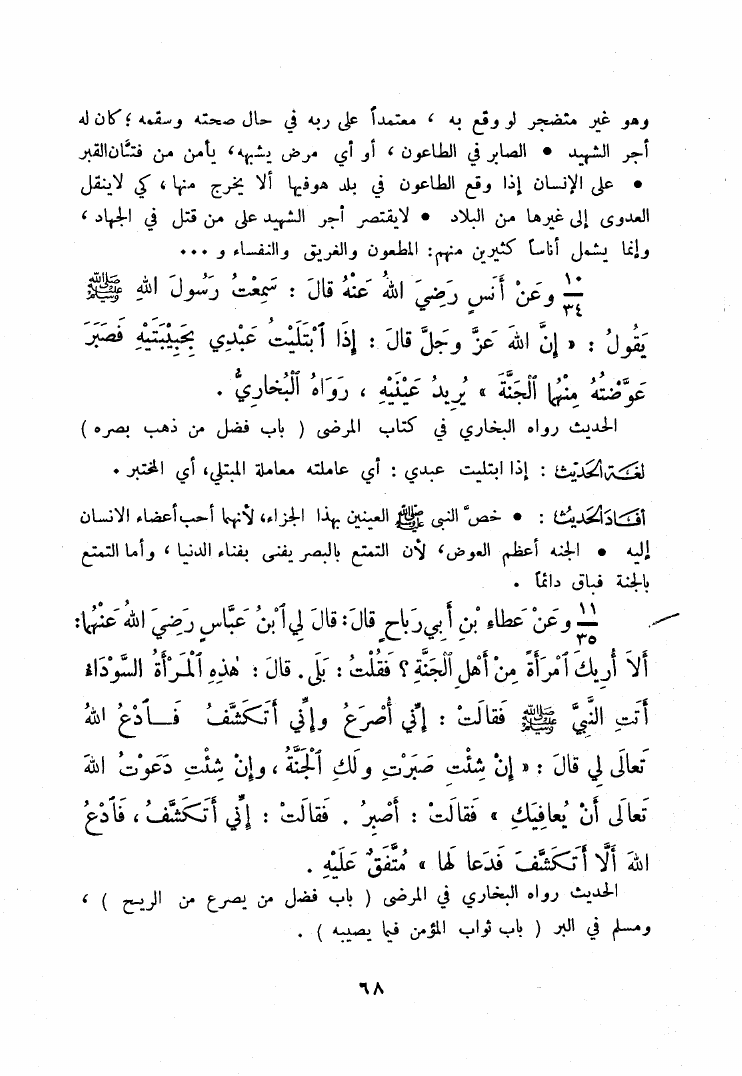 وهو غير متضجر لو وقع به ، معتمداً على ربه في حال صحته وسقمه ؛ كان له
أجر الشهيد • الصابر في الطاعون ، أو أي مرض يشبهه، يأمن من فتَّان القبر
• على الإنسان إذا وقع الطاعون في بلد هو فيها ألا يخرج منها ، كي لا ينقل
العدوى إلى غيرها من البلاد • لا يقتصر أجر الشهيد على من قتل في الجهاد ،
وإنما يشمل أناساً كثيرين منهم: المطعون والغريق والنفساء و ...
١٠/٣٤ وعَنْ أَنَسٍ رَضِيَ اللهُ عَنْهُ قالَ : سَمِعْتُ رَسُولَ اللهِ ﷺ
يَقُولُ : « إِنَّ اللهَ عَزَّ وجَلَّ قالَ : إِذَا ٱبْتَلَيْتُ عَبْدِي بِحَبِيْبَتَيْهِ فَصَبَرَ
عَوَّضْتُهُ مِنْهُما ٱلْجَنَّةَ » يُرِيدُ عَيْنَيْهِ ، رَوَاهُ ٱلْبُخارِيُّ .
الحديث رواه البخاري في كتاب المرضى ( باب فضل من ذهب بصره )
لغَـة الحَديْث : إذا ابتليت عبدي : أي عاملته معاملة المبتلي، أي المختبر .
أفـَادَ الحَديْث : • خصَّ النبي ﷺ العينين بهذا الجزاء، لأنهما أحب أعضاء الانسان
إليه • الجنه أعظم العوض، لأن التمتع بالبصر يفنى بفناء الدنيا ، وأما التمتع
بالجنة فباق دائماً .
١١/٣٥ وعَنْ عَطاءِ بْنِ أَبي رَباحٍ قالَ: قالَ لِي ٱبْنُ عَبَّاسٍ رَضِيَ اللهُ عَنْهُما:
أَلَا أُرِيكَ ٱمْرَأَةً مِنْ أَهْلِ ٱلْجَنَّةِ ؟ فَقُلْتُ : بَلَى. قالَ : هٰذِهِ ٱلْمَـرْأَةُ السَّوْدَاءُ
أَتَتِ النَّبِيَّ ﷺ فَقالَتْ : إِنِّي أُصْرَعُ وإِنِّي أَتَكَشَّفُ فَـادْعُ اللهَ
تَعالَى لِي قالَ : « إِنْ شِئْتِ صَبَرْتِ ولَكِ ٱلْجَنَّةُ ، وإِنْ شِئْتِ دَعَوْتُ اللهَ
تَعالَى أَنْ يُعافِيَكِ » فَقالَتْ : أَصْبِرُ . فَقالَتْ : إِنِّي أَتَكَشَّفُ ، فَادْعُ
اللهَ أَلَّا أَتَكَشَّفَ فَدَعا لَها » مُتَّفَقٌ عَلَيْهِ .
الحديث رواه البخاري في المرضى ( باب فضل من يصرع من الريـح ) ،
ومسلم في البر ( باب ثواب المؤمن فيما يصيبه ) .
٦٨